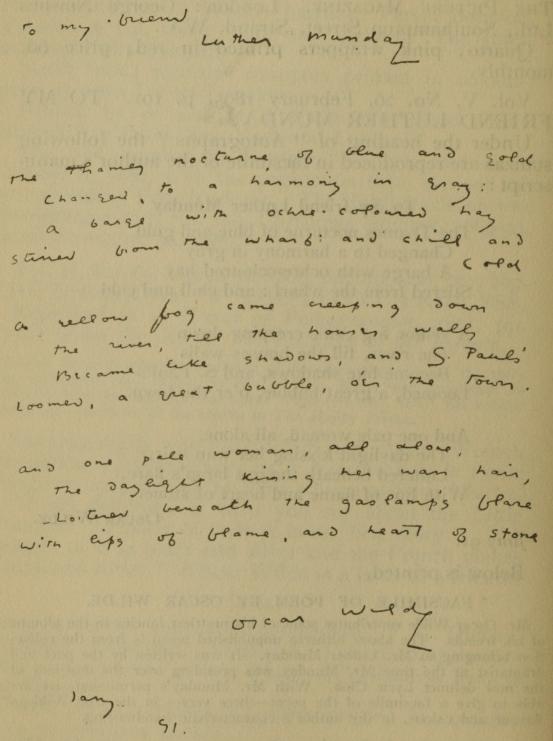 To my friend
Luther Munday
The Thames nocturne of blue and gold
Changed, to a harmony in gray:
a barge with ochre-coloured hay
stirred from the wharf: and chill and
cold
a yellow fog came creeping down
the river, till the houses walls
Became like shadows, and S. Pauls'
Loomed, a great bubble, oer the town.
and one pale woman, all alone,
The daylight kissing her wan hair,
Loitered beneath the gaslamps flare
with lips of flame, and heart of stone
Oscar Wilde
Jany.
91.